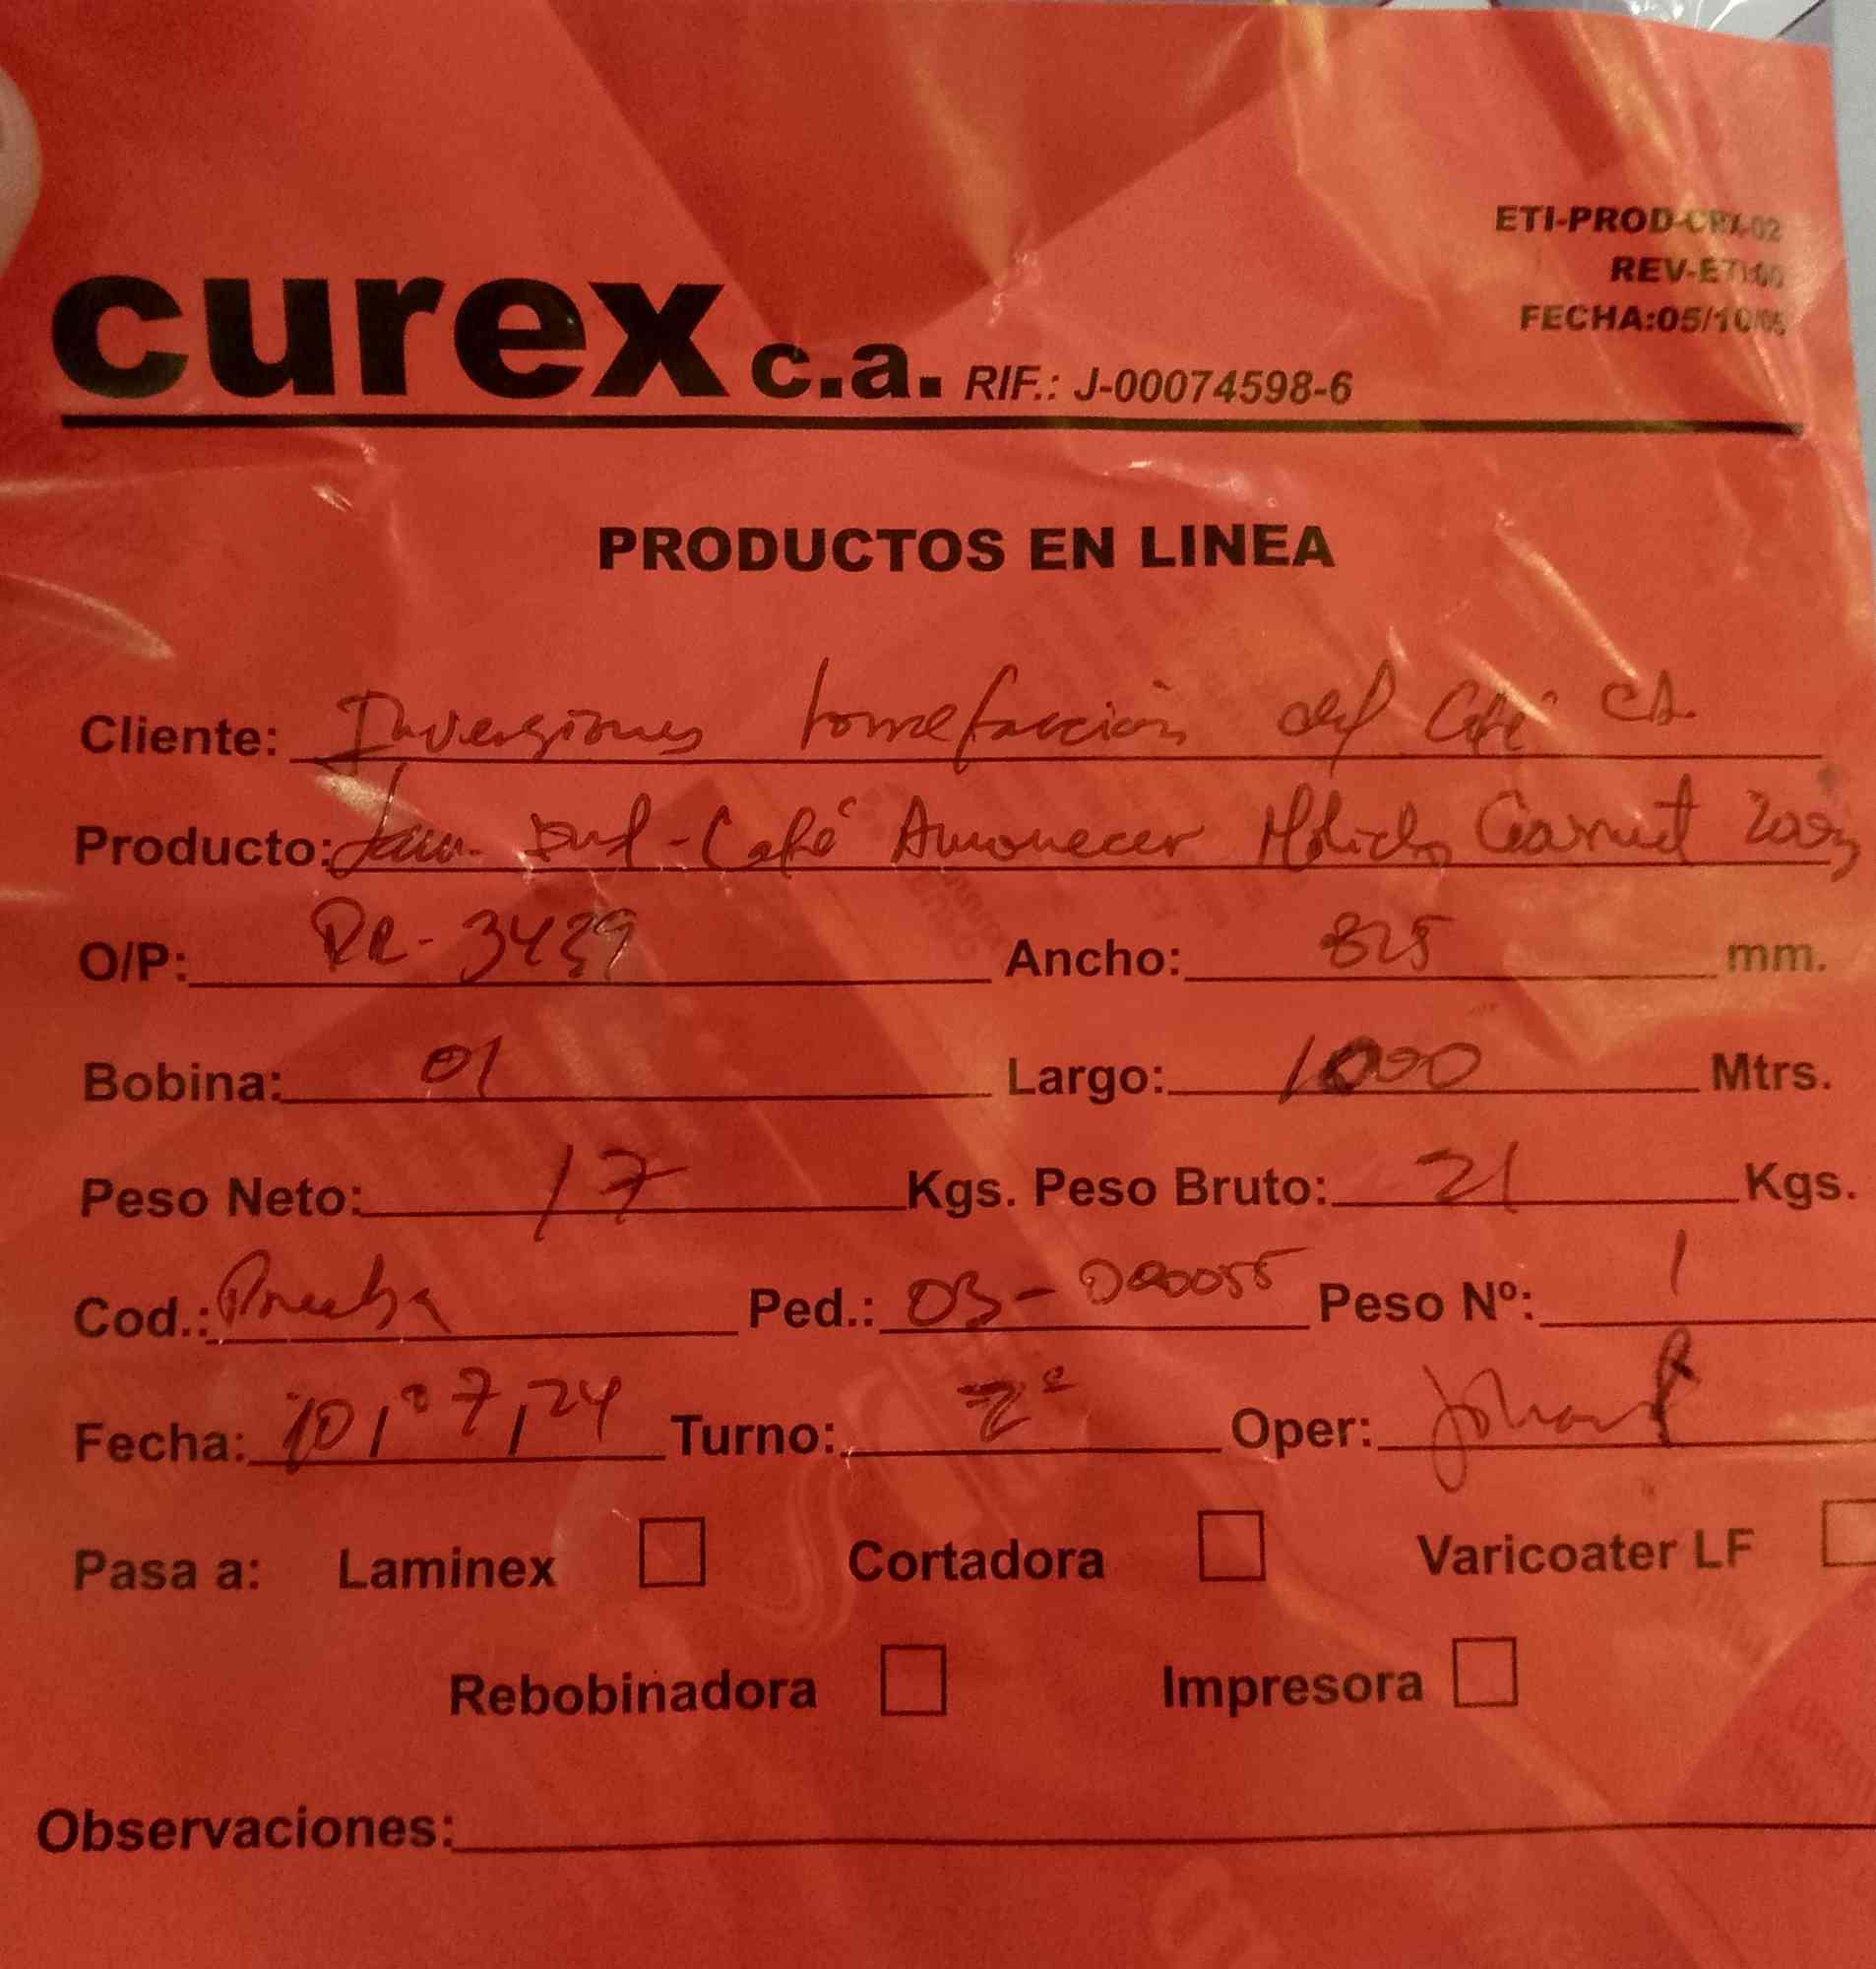 ETI-PROD-CRX-02
REV-ETI:00
FECHA:05/10/05
curex c.a. RIF.: J-00074598-6
PRODUCTOS EN LINEA
Cliente: Inversiones torrefacción del Café CA
Producto: Lam. - Café Amanecer Molido Gourmet 200g
O/P: RR-3439 Ancho: 825 mm.
Bobina: 01 Largo: 1000 Mtrs.
Peso Neto: 17 Kgs. Peso Bruto: 21 Kgs.
Cod.: Prueba Ped.: 03-000055 Peso Nº: 1
Fecha: 10/07/24 Turno: 2º Oper:
Pasa a: Laminex Cortadora Varicoater LF
Rebobinadora Impresora
Observaciones: